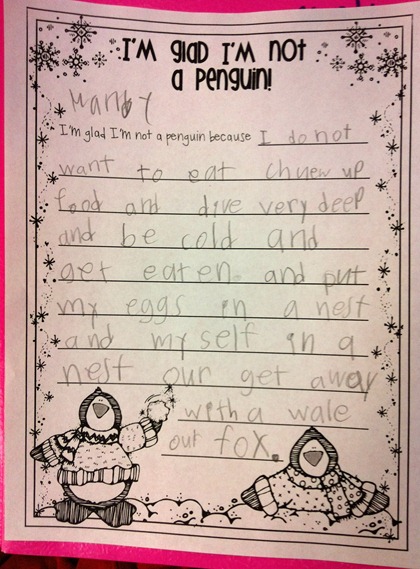 I'M glad I'M not
a Penguin!
Mandy
I'm glad I'm not a penguin because I do not
want to eat chuew up
food and dive very deep
and be cold and
get eaten and put
my eggs in a nest
and my self in a
nest our get away
with a wale
our fox.